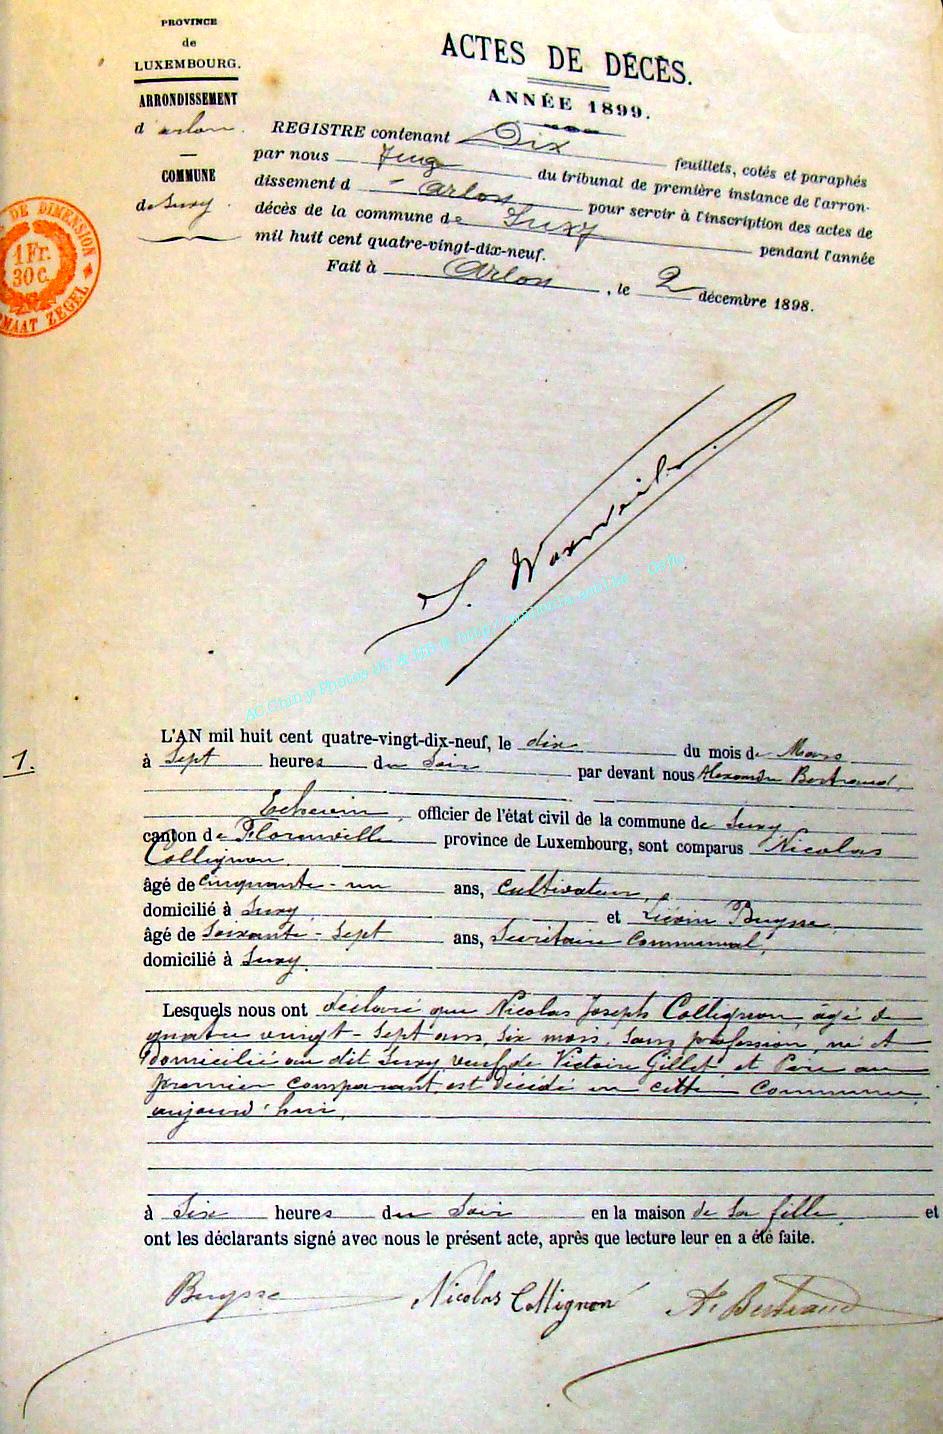 PROVINCE
de
LUXEMBOURG.
ARRONDISSEMENT
d'arlon.
COMMUNE
de Suxy.
DE DIMENSION
1 Fr.
30 C.
MAAT ZEGEL
ACTES DE DÉCÈS.
ANNÉE 1899.
REGISTRE contenant Dix feuillets, cotés et paraphés
par nous Juge du tribunal de première instance de l'arron-
dissement d Arlon pour servir à l'inscription des actes de
décès de la commune de Suxy pendant l'année
mil huit cent quatre-vingt-dix-neuf.
Fait à Arlon, le 2 décembre 1898.
1.
L'AN mil huit cent quatre-vingt-dix-neuf, le dix du mois de Mars
à Sept heures du Soir par devant nous Alexandre Bertrand,
Echevin, officier de l'état civil de la commune de Suxy
canton de Florenville province de Luxembourg, sont comparus Nicolas
Collignon
âgé de cinquante-un ans, cultivateur,
domicilié à Suxy, et Liévin Buysse,
âgé de Soixante-Sept ans, Secrétaire Communal,
domicilié à Suxy.
Lesquels nous ont déclaré que Nicolas Joseph Collignon, âgé de
quatre vingt-sept ans, six mois, sans profession, né et
domicilié au dit Suxy, veuf de Victoire Gillet et Père au
premier comparant, est décédé en cette Commune,
aujourd'hui,
à Six heures du Soir en la maison de Sa fille, et
ont les déclarants signé avec nous le présent acte, après que lecture leur en a été faite.
Buysse Nicolas Collignon Al Bertrand